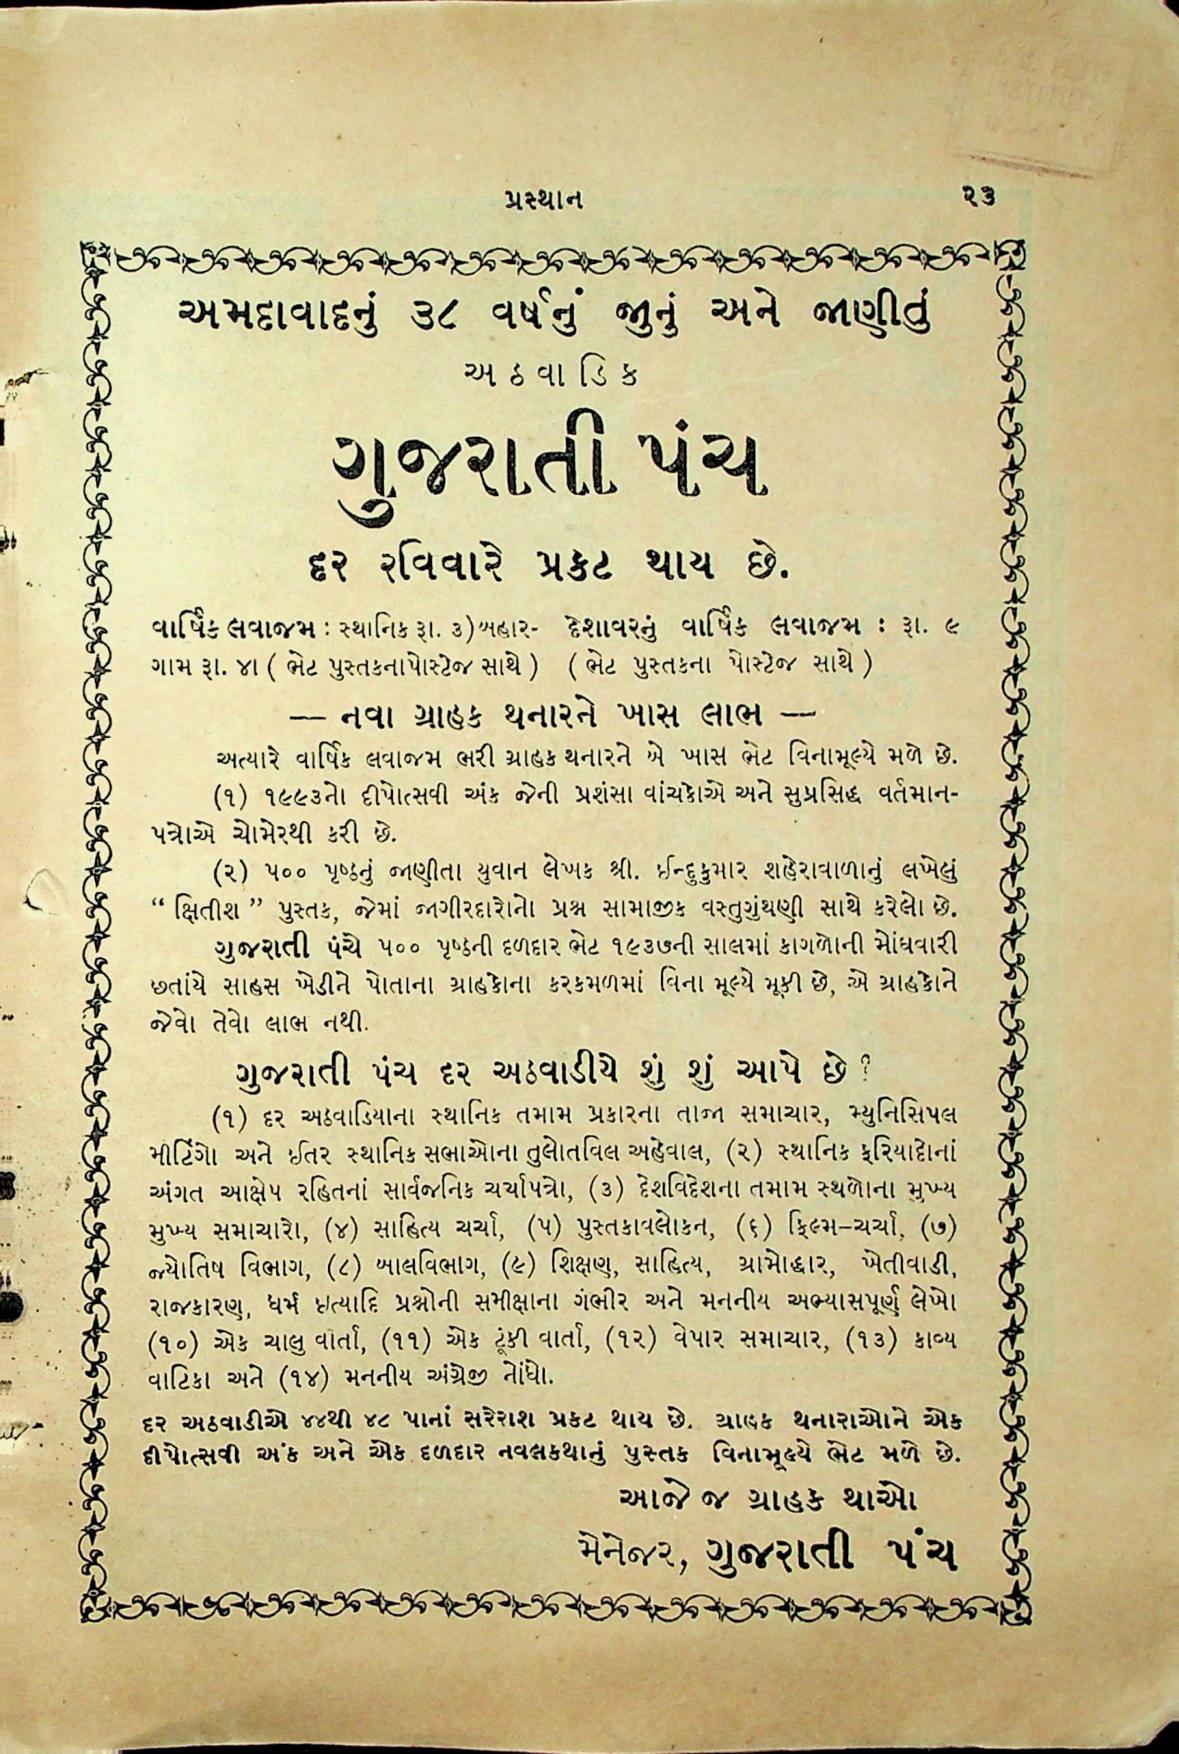 પ્રસ્થાન
૨૩
અમદાવાદનું ૩૮ વર્ષનું જુનું અને જાણીતું
અઠવાડિક
ગુજરાતી પંચ
દર રવિવારે પ્રકટ થાય છે.
વાર્ષિક લવાજમ : સ્થાનિક રૂા. ૩) બહાર-
ગામ રૂા. ૪ા ( ભેટ પુસ્તકનાપોસ્ટેજ સાથે )
દેશાવરનું વાર્ષિક લવાજમ : રૂા. ૯
( ભેટ પુસ્તકના પોસ્ટેજ સાથે )
— નવા ગ્રાહક થનારને ખાસ લાભ —
અત્યારે વાર્ષિક લવાજમ ભરી ગ્રાહક થનારને બે ખાસ ભેટ વિનામૂલ્યે મળે છે.
(૧) ૧૯૯૩નો દીપોત્સવી અંક જેની પ્રશંસા વાંચકોએ અને સુપ્રસિદ્ધ વર્તમાન-
પત્રોએ ચોમેરથી કરી છે.
(૨) ૫૦૦ પૃષ્ઠનું જાણીતા યુવાન લેખક શ્રી. ઈન્દુકુમાર શહેરાવાળાનું લખેલું
“ ક્ષિતીશ ” પુસ્તક, જેમાં જાગીરદારોનો પ્રશ્ન સામાજીક વસ્તુગુંથણી સાથે કરેલો છે.
ગુજરાતી પંચે ૫૦૦ પૃષ્ઠની દળદાર ભેટ ૧૯૩૭ની સાલમાં કાગળોની મોંઘવારી
છતાંયે સાહસ ખેડીને પોતાના ગ્રાહકોના કરકમળમાં વિના મૂલ્યે મૂકી છે, એ ગ્રાહકોને
જેવો તેવો લાભ નથી.
ગુજરાતી પંચ દર અઠવાડીયે શું શું આપે છે ?
(૧) દર અઠવાડિયાના સ્થાનિક તમામ પ્રકારના તાજા સમાચાર, મ્યુનિસિપલ
મીટિંગો અને ઈતર સ્થાનિક સભાઓના તુલોતવિલ અહેવાલ, (૨) સ્થાનિક ફરિયાદોનાં
અંગત આક્ષેપ રહિતનાં સાર્વજનિક ચર્ચાપત્રો, (૩) દેશવિદેશના તમામ સ્થળોના મુખ્ય
મુખ્ય સમાચારો, (૪) સાહિત્ય ચર્ચા, (૫) પુસ્તકાવલોકન, (૬) ફિલ્મ-ચર્ચા, (૭)
જ્યોતિષ વિભાગ, (૮) બાલવિભાગ, (૯) શિક્ષણ, સાહિત્ય, ગ્રામોદ્ધાર, ખેતીવાડી,
રાજકારણ, ધર્મ ઇત્યાદિ પ્રશ્નોની સમીક્ષાના ગંભીર અને મનનીય અભ્યાસપૂર્ણ લેખો
(૧૦) એક ચાલુ વાર્તા, (૧૧) એક ટૂંકી વાર્તા, (૧૨) વેપાર સમાચાર, (૧૩) કાવ્ય
વાટિકા અને (૧૪) મનનીય અંગ્રેજી નોંધો.
દર અઠવાડીએ ૪૪થી ૪૮ પાનાં સરેરાશ પ્રકટ થાય છે. ગ્રાહક થનારાઓને એક
દીપોત્સવી અંક અને એક દળદાર નવલકથાનું પુસ્તક વિનામૂલ્યે ભેટ મળે છે.
આજે જ ગ્રાહક થાઓ
મેનેજર, ગુજરાતી પંચ